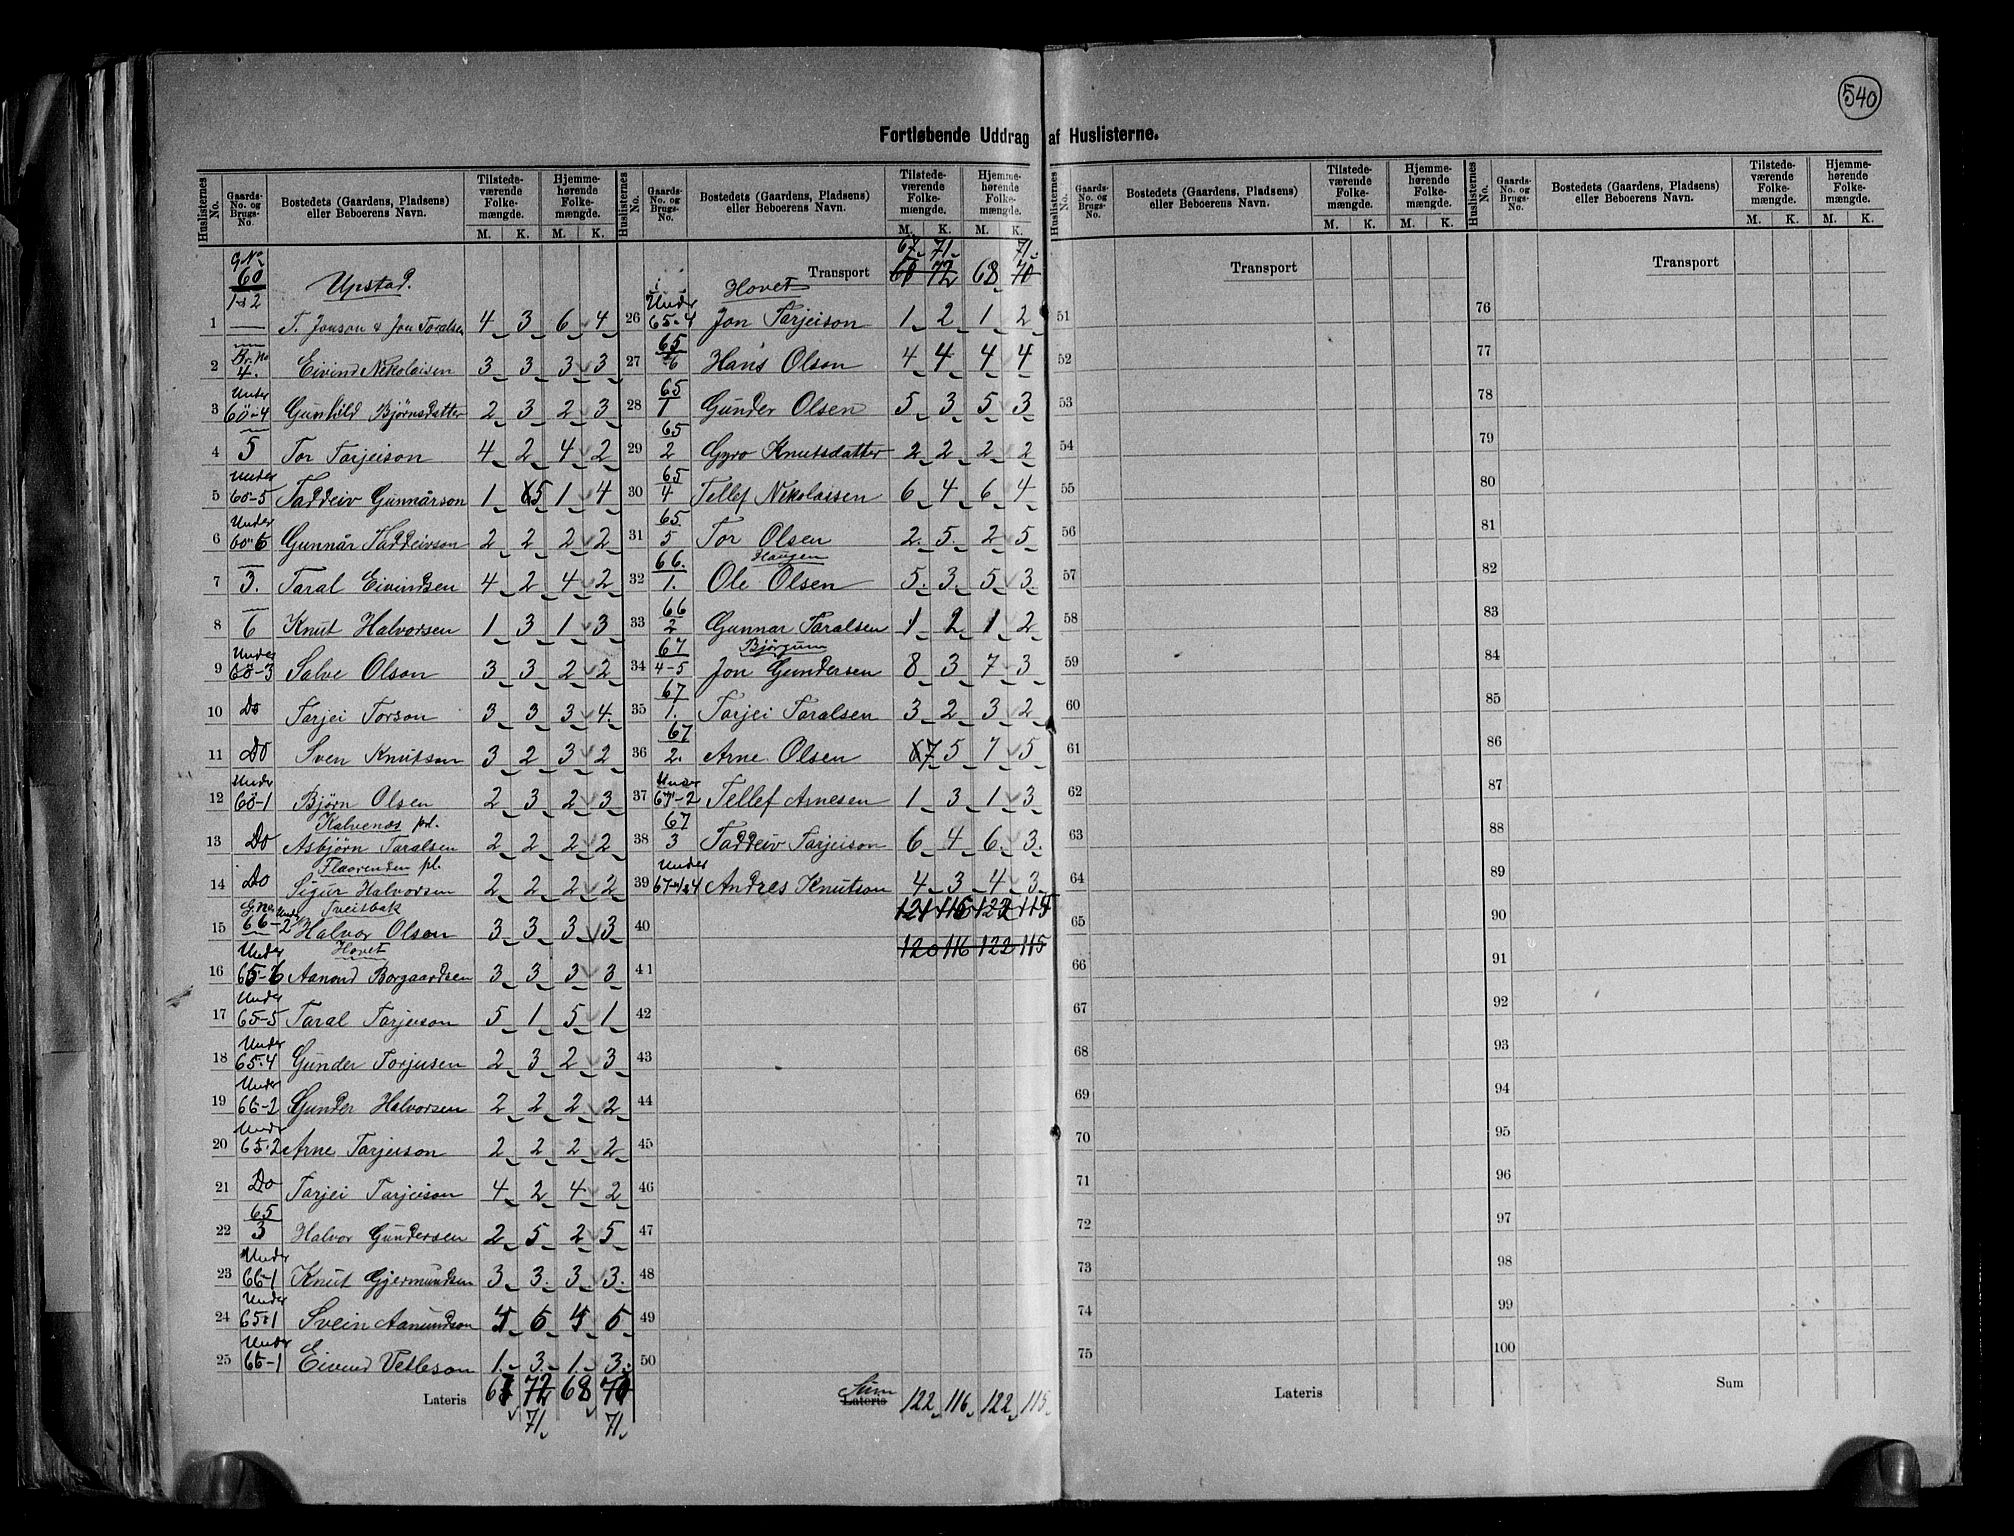 540
Fortløbende Uddrag af Huslisterne.
Huslisternes No. | Gaards-No. og Brugs-No. | Bostedets (Gaardens, Pladsens) eller Beboerens Navn. | Tilstedeværende Folkemængde. M. K. | Hjemmehørende Folkemængde. M. K.
G No 60 Upstad.
1 | 1 & 2 | T. Jonson & Jon Toralsen | 4 3 6 4
2 | Br. No 4. | Eivind Nikolaisen | 3 3 3 3
3 | Under 60-4 | Gunhild Bjørnsdatter | 2 3 2 3
4 | 5 | Tor Tarjeison | 4 2 4 2
5 | Under 60-5 | Taddeiv Gunnårson | 1 5 1 4
6 | Under 60-6 | Gunnår Taddeivson | 2 2 2 2
7 | 3. | Taral Eivindsen | 4 2 4 2
8 | 6 | Knut Halvorsen | 1 3 1 3
9 | Under 60-3 | Salve Olson | 3 3 2 2
10 | Do | Tarjei Torson | 3 3 3 4.
11 | Do | Sven Knutson | 3 2 3 2
12 | Under 60-1 | Bjørn Olsen | 2 3 2 3
Kalvenæs pl.
13 | Do | Asbjørn Taralsen | 2 2 2 2
Flaarenden pl.
14 | Do | Sigur Halvorsen | 2 2 2 2
Tveitbak
15 | G. No. Under 66-2 | Halvor Olsen | 3 3 3 3
Hovet
16 | Under 65-6 | Aanond Borgaardsen | 3 3 3 3
17 | Under 65-5 | Taral Tarjeison | 5 1 5 1
18 | Under 65-4 | Gunder Torjusen | 2 3 2 3
19 | Under 66-2 | Gunder Halvorsen | 2 2 2 2
20 | Under 65-2 | Arne Tarjeison | 2 2 2 2
21 | Do | Tarjei Tarjeison | 4 2 4 2
22 | 65 3 | Halvor Gundersen | 2 5 2 5
23 | Under 66-1 | Knut Gjermundsen | 3 3. 3 3.
24 | Under 65-1 | Svein Aamundson
25 | Under 66-1 | Eivind Vetleson | 1. 3. 1. 3.
Lateris 72 68 70
71 71
Huslisternes No. | Gaards-No. og Brugs-No. | Bostedets (Gaardens, Pladsens) eller Beboerens Navn. | Tilstedeværende Folkemængde. M. K. | Hjemmehørende Folkemængde. M. K.
67 71 71
Transport 68 72 68 70
Hovet
26 | Under 65-4 | Jon Tarjeison | 1 2 1 2
27 | 65 6 | Hans Olson | 4 4 4 4
28 | 65 1 | Gunder Olsen | 5 3 5 3
29 | 65 2 | Gyro Knutsdatter | 2 2 2 2
30 | 65 4 | Tellef Nikolaisen | 6 4 6 4
31 | 65 5 | Tor Olsen | 2. 5. 2 5
Haugen
32 | 66. 1. | Ole Olsen | 5. 3. 5 3.
33 | 66 2 | Gunnar Taralsen | 1 2 1 2
Bjørgum
34 | 67 4-5 | Jon Gundersen | 8 3 7 3
35 | 67 1. | Tarjei Taralsen | 3 2 3 2
36 | 67 2. | Arne Olsen | 7 5 7 5
37 | Under 67-2 | Tellef Arnesen | 1 3 1 3
38 | 67 3 | Taddeiv Tarjeison | 6 4 6. 3.
39 | Under 67-1&4 | Andres Knutson | 4 3 4 3.
121 116 122 115
40
120 116 122 115
41
42
43
44
45
46
47
48
49
50
Sum Lateris 122 116 122 115
Huslisternes No. | Gaards-No. og Brugs-No. | Bostedets (Gaardens, Pladsens) eller Beboerens Navn. | Tilstedeværende Folkemængde. M. K. | Hjemmehørende Folkemængde. M. K.
Transport
51
52
53
54
55
56
57
58
59
60
61
62
63
64
65
66
67
68
69
70
71
72
73
74
75
Lateris
Huslisternes No. | Gaards-No. og Brugs-No. | Bostedets (Gaardens, Pladsens) eller Beboerens Navn. | Tilstedeværende Folkemængde. M. K. | Hjemmehørende Folkemængde. M. K.
Transport
76
77
78
79
80
81
82
83
84
85
86
87
88
89
90
91
92
93
94
95
96
97
98
99
100
Sum